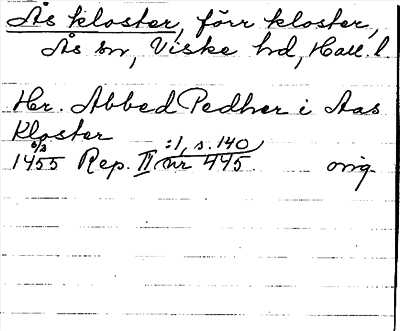 Ås kloster, förr kloster,
Ås sn, Viske hd, Hall. l
Hr. Abbed Pedher i Aas
Kloster
1455 6/3 Rep. II :1, s. 140 nr 445. orig.